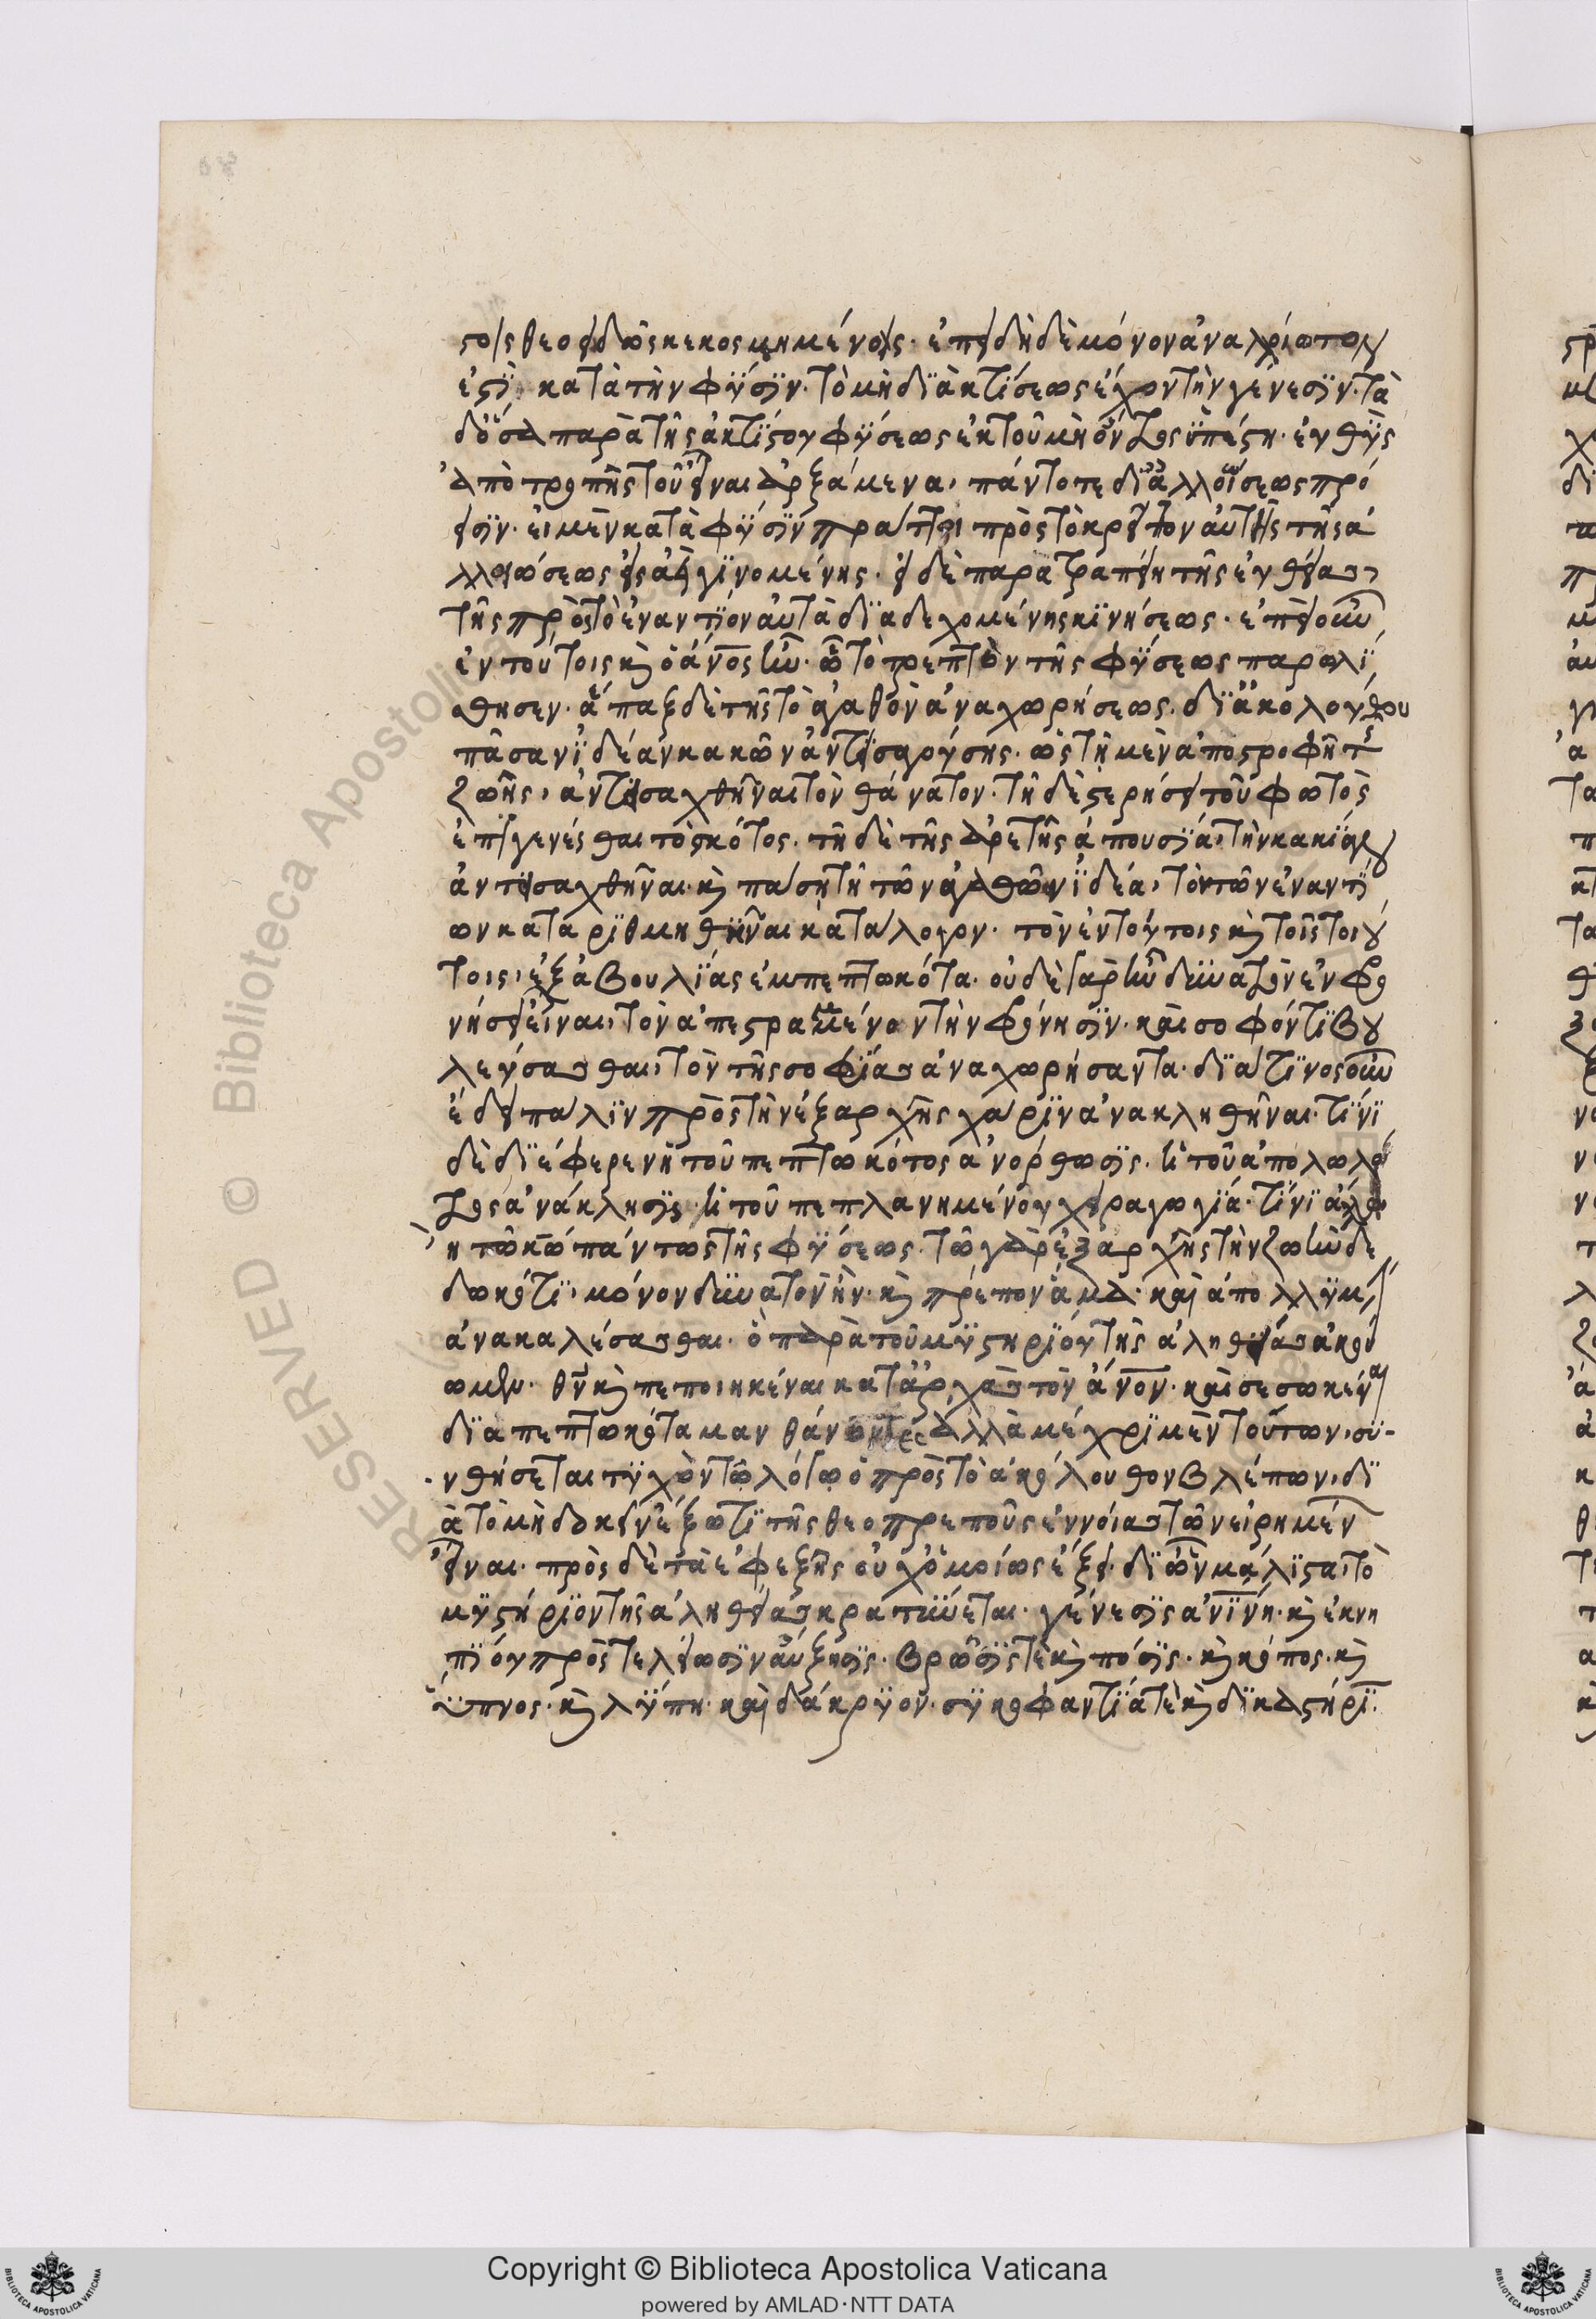 ςοις θεοειδῶς κεκοσμημένοις. ἐπειδὴ δὲ μόνον ἀναλλοίωτον
ἐςϊ κατὰ τὴν φΰσϊν. τὸ μὴ δϊὰ κτΐσεως ἔχον τὴν γένεσϊν. τὰ
δ' ὅσα παρὰ τῆς ἀκτΐςου φΰσεως ἐκ τοῦ μὴ ὄντος ϋπέςη. εὐθϋς
ἀπὸ τροπῆς τοῦ εἶναι ἀρξάμενα, πάντοτε δϊ ἀλλοιώσεως πρό
εισϊν. εἰ μὲν κατὰ φΰσϊν πράττει πρὸς τὸ κρεῖττον αὐτῆς τῆς ἀ
λλοιώσεως εἰς ἀεὶ γϊνομένης. εἰ δὲ παρατραπείη τῆς εὐθείας,
τῆς πρὸς τὸ ἐναντΐον αὐτὰ δϊαδεχομένης κϊνήσεως. ἐπεὶ οὖν
ἐν τούτοις κ̀ ὁ ἄν̅ος ἦν. ὧ τὸ τρεπτὸν τῆς φΰσεως παρωλΐ
σθησεν. ἅπαξ δὲ τῆς τὸ ἀγαθὸν ἀναχωρήσεως. δϊ ἀκολούθου
πᾶσαν ϊδέαν κακῶν ἀντεισαγούσης. ὡς τῆ μὲν ἀποςροφῆ τῆς
ζωῆς, ἀντεισαχθῆναι τὸν θάνατον. τῆ δὲ ςερήσει τοῦ φωτὸς
ἐπιγενέσθαι τὸ σκότος. τῆ δὲ τῆς ἀρετῆς ἀπουσΐα, τὴν κακΐαν
ἀντεισαχθῆναι. κ̀ πάση τῆ τῶν ἀγαθῶν ϊδέα, τὸν τῶν ἐναντΐ
ων καταρϊθμηθῆναι κατάλογον. τὸν ἐν τούτοις κ̀ τοῖς τοιού
τοις, ἐξ ἀβουλΐας ἐμπεπτωκότα. οὐδὲ γὰρ ἦν δϋνατὸν ἐν φρο
νήσει εἶναι, τὸν ἀπεςραμμένον τὴν φρόνησϊν. καὶ σοφόν τϊ βου
λεύσασθαι, τὸν τῆς σοφΐας ἀναχωρήσαντα. δϊα τΐνος οὖν
ἔδει πάλϊν πρὸς τὴν ἐξαρχῆς χάρϊν ἀνακληθῆναι. τΐνϊ
δὲ δϊέφερεν ἡ τοῦ πεπτωκότος ἀνόρθωσϊς. ἡ τοῦ ἀπολωλό
τος ἀνάκλησϊς. ἡ τοῦ πεπλανημένου χειραγωγΐα. τΐνϊ ἄλλω
ἢ τῶ κ̅ω πάντως τῆς φΰσεως. τῶ γὰρ ἐξαρχῆς τὴν ζωὴν δε
δωκότϊ, μόνον δϋνατὸν ἦν. κ̀ πρέπον ἅμα. καὶ ἀπολλΰμ
ἀνακαλέσασθαι. ὃ παρὰ τοῦ μϋςηρΐου τῆς ἀληθείας ἀκού
ομεν. θ̅ν κ̀ πεποιηκέναι κατ ἀρχὰς τὸν ἄν̅ον. καὶ σεσωκέναι
δϊαπεπτωκότα μανθάνοντες ἀλλὰ μέχρϊ μὲν τούτων, σϋ-
νθήσεται τϋχὸν τῶ λόγω ὁ πρὸς τὸ ἀκόλουθον βλέπων, δϊ
ὰ τὸ μὴ δοκεῖν ἔξω τϊ τῆς θεοπρεποῦς ἐννοίας τῶν εἰρημέν
εἶναι. πρὸς δὲ τὰ ἐφεξῆς οὐχ ὁμοίως ἕξει. δϊ ὧν μάλϊςα, τὸ
μϋςήρϊον τῆς ἀληθείας κρατϋνεται. γένεσϊς ἀν̅ΐνη. κ̀ ἐκ νη
πΐου πρὸς τελείωσϊν αὔξησϊς. βρῶσΐς τε κ̀ πόσϊς. κ̀ κόπος. κ̀
ὕπνος. κ̀ λΰπη. καὶ δάκρϋον. σϋκοφαντΐα τε κ̀ δϊκαςήρϊ
RESERVED © Biblioteca Apostolica
Copyright © Biblioteca Apostolica Vaticana
powered by AMLAD·NTT DATA